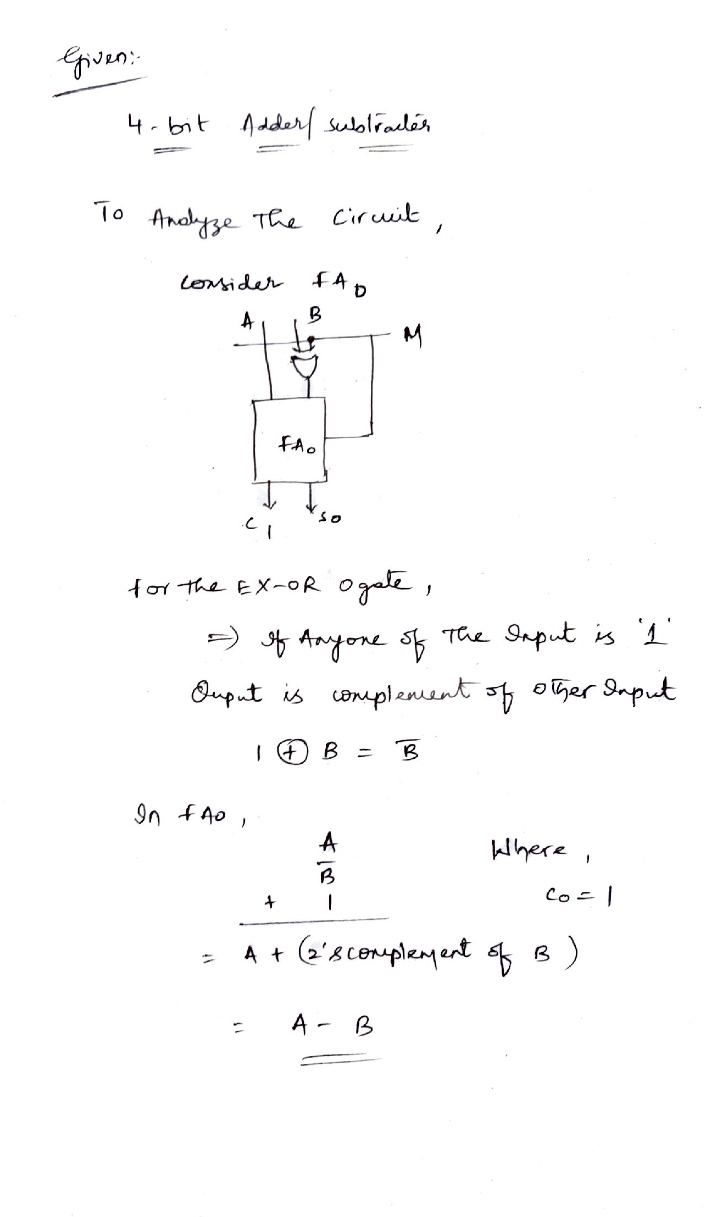 Given:-
4-bit Adder/ subtracter
To Analyze The Circuit,
Consider FA0
A B
M
FA0
C1 S0
for the EX-OR 0 gate,
=) If Anyone of The Input is '1'
Ouput is complement of other Input
1 ⊕ B = B̅
In FA0,
A Where,
B̅
+ 1 C0 = 1
= A + (2's complement of B)
= A - B